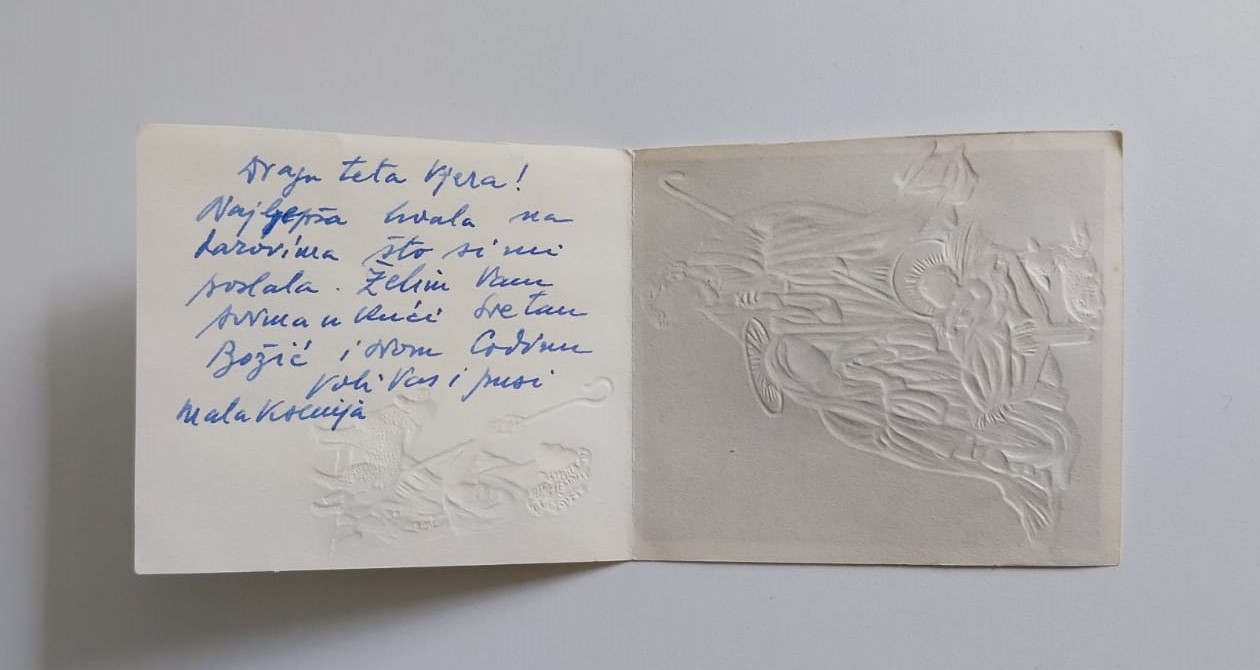 Draga teta Vjera!
Najljepša hvala na
darovima što si mi
poslala. Želim Vam
svima u kući Sretan
Božić i Novu Godinu
Voli Vas i pusi
mala Ksenija